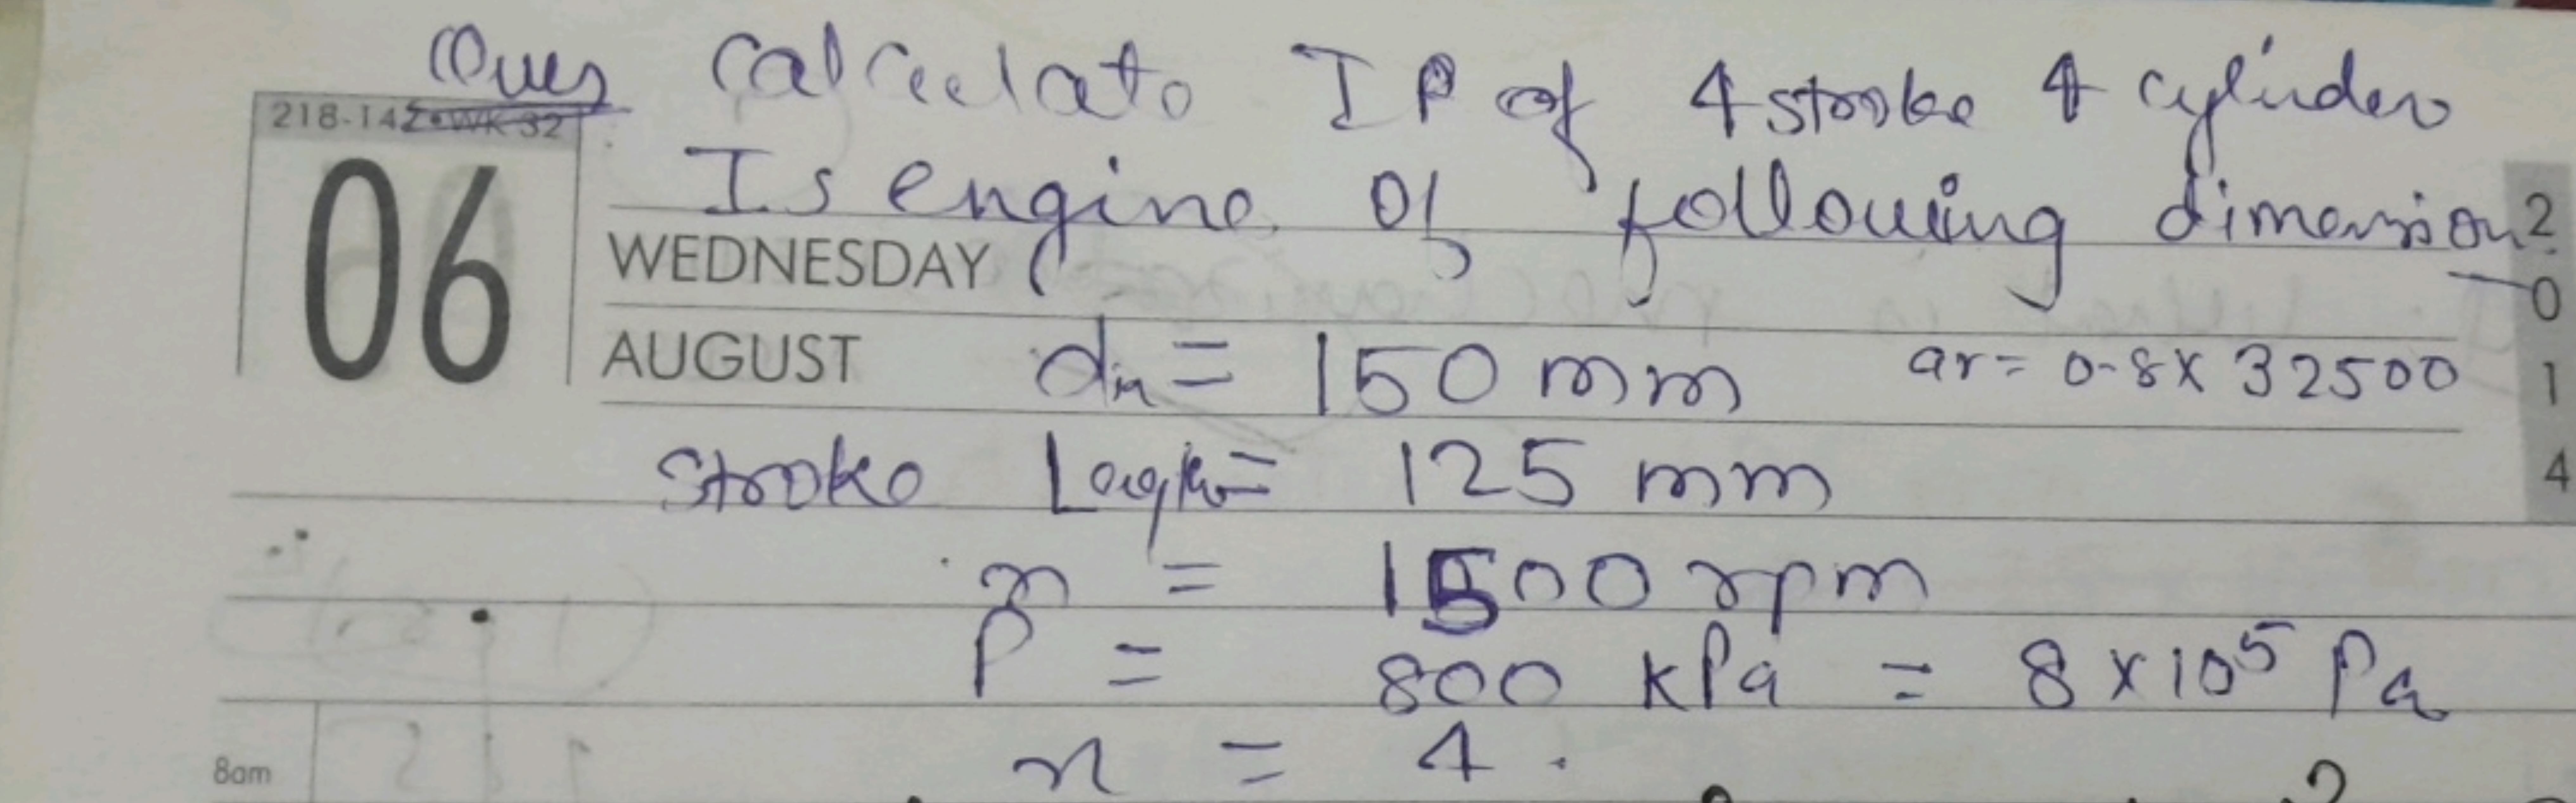 Ques Calculate IP of 4 stroke 4 cylinder
218-147•WK 32
Is engine of following dimension
06
WEDNESDAY
AUGUST
dia = 150 mm ar = 0.8 x 32500
Stroke Length = 125 mm
n = 1500 rpm
P = 800 kPa = 8 x 10⁵ Pa
8am n = 4.
2
0
1
4